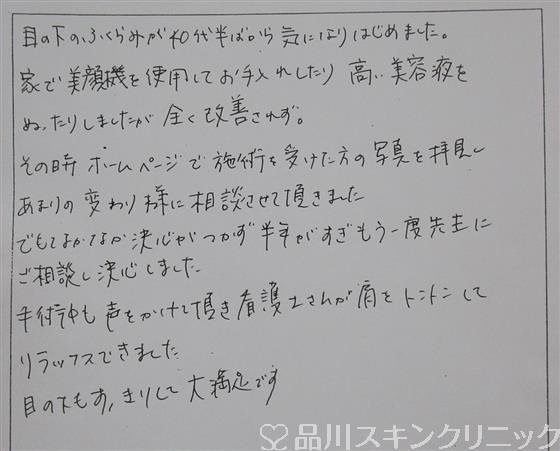 目の下のふくらみが40代半ばから気になりはじめました。
家で美顔機を使用してお手入れしたり高い美容液を
ぬったりしましたが全く改善されず。
その時ホームページで施術を受けた方の写真を拝見し
あまりの変わり様に相談させて頂きました
でもなかなか決心がつかず半年がすぎもう一度先生に
ご相談し決心しました
手術中も声をかけて頂き看護士さんが肩をトントンして
リラックスできました
目の下もすっきりして大満足です
品川スキンクリニック